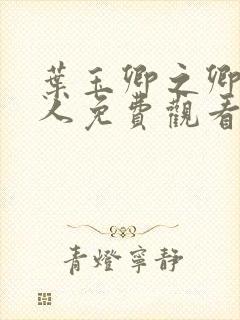 葉玉卿之卿
人免費觀看
青燈寧靜